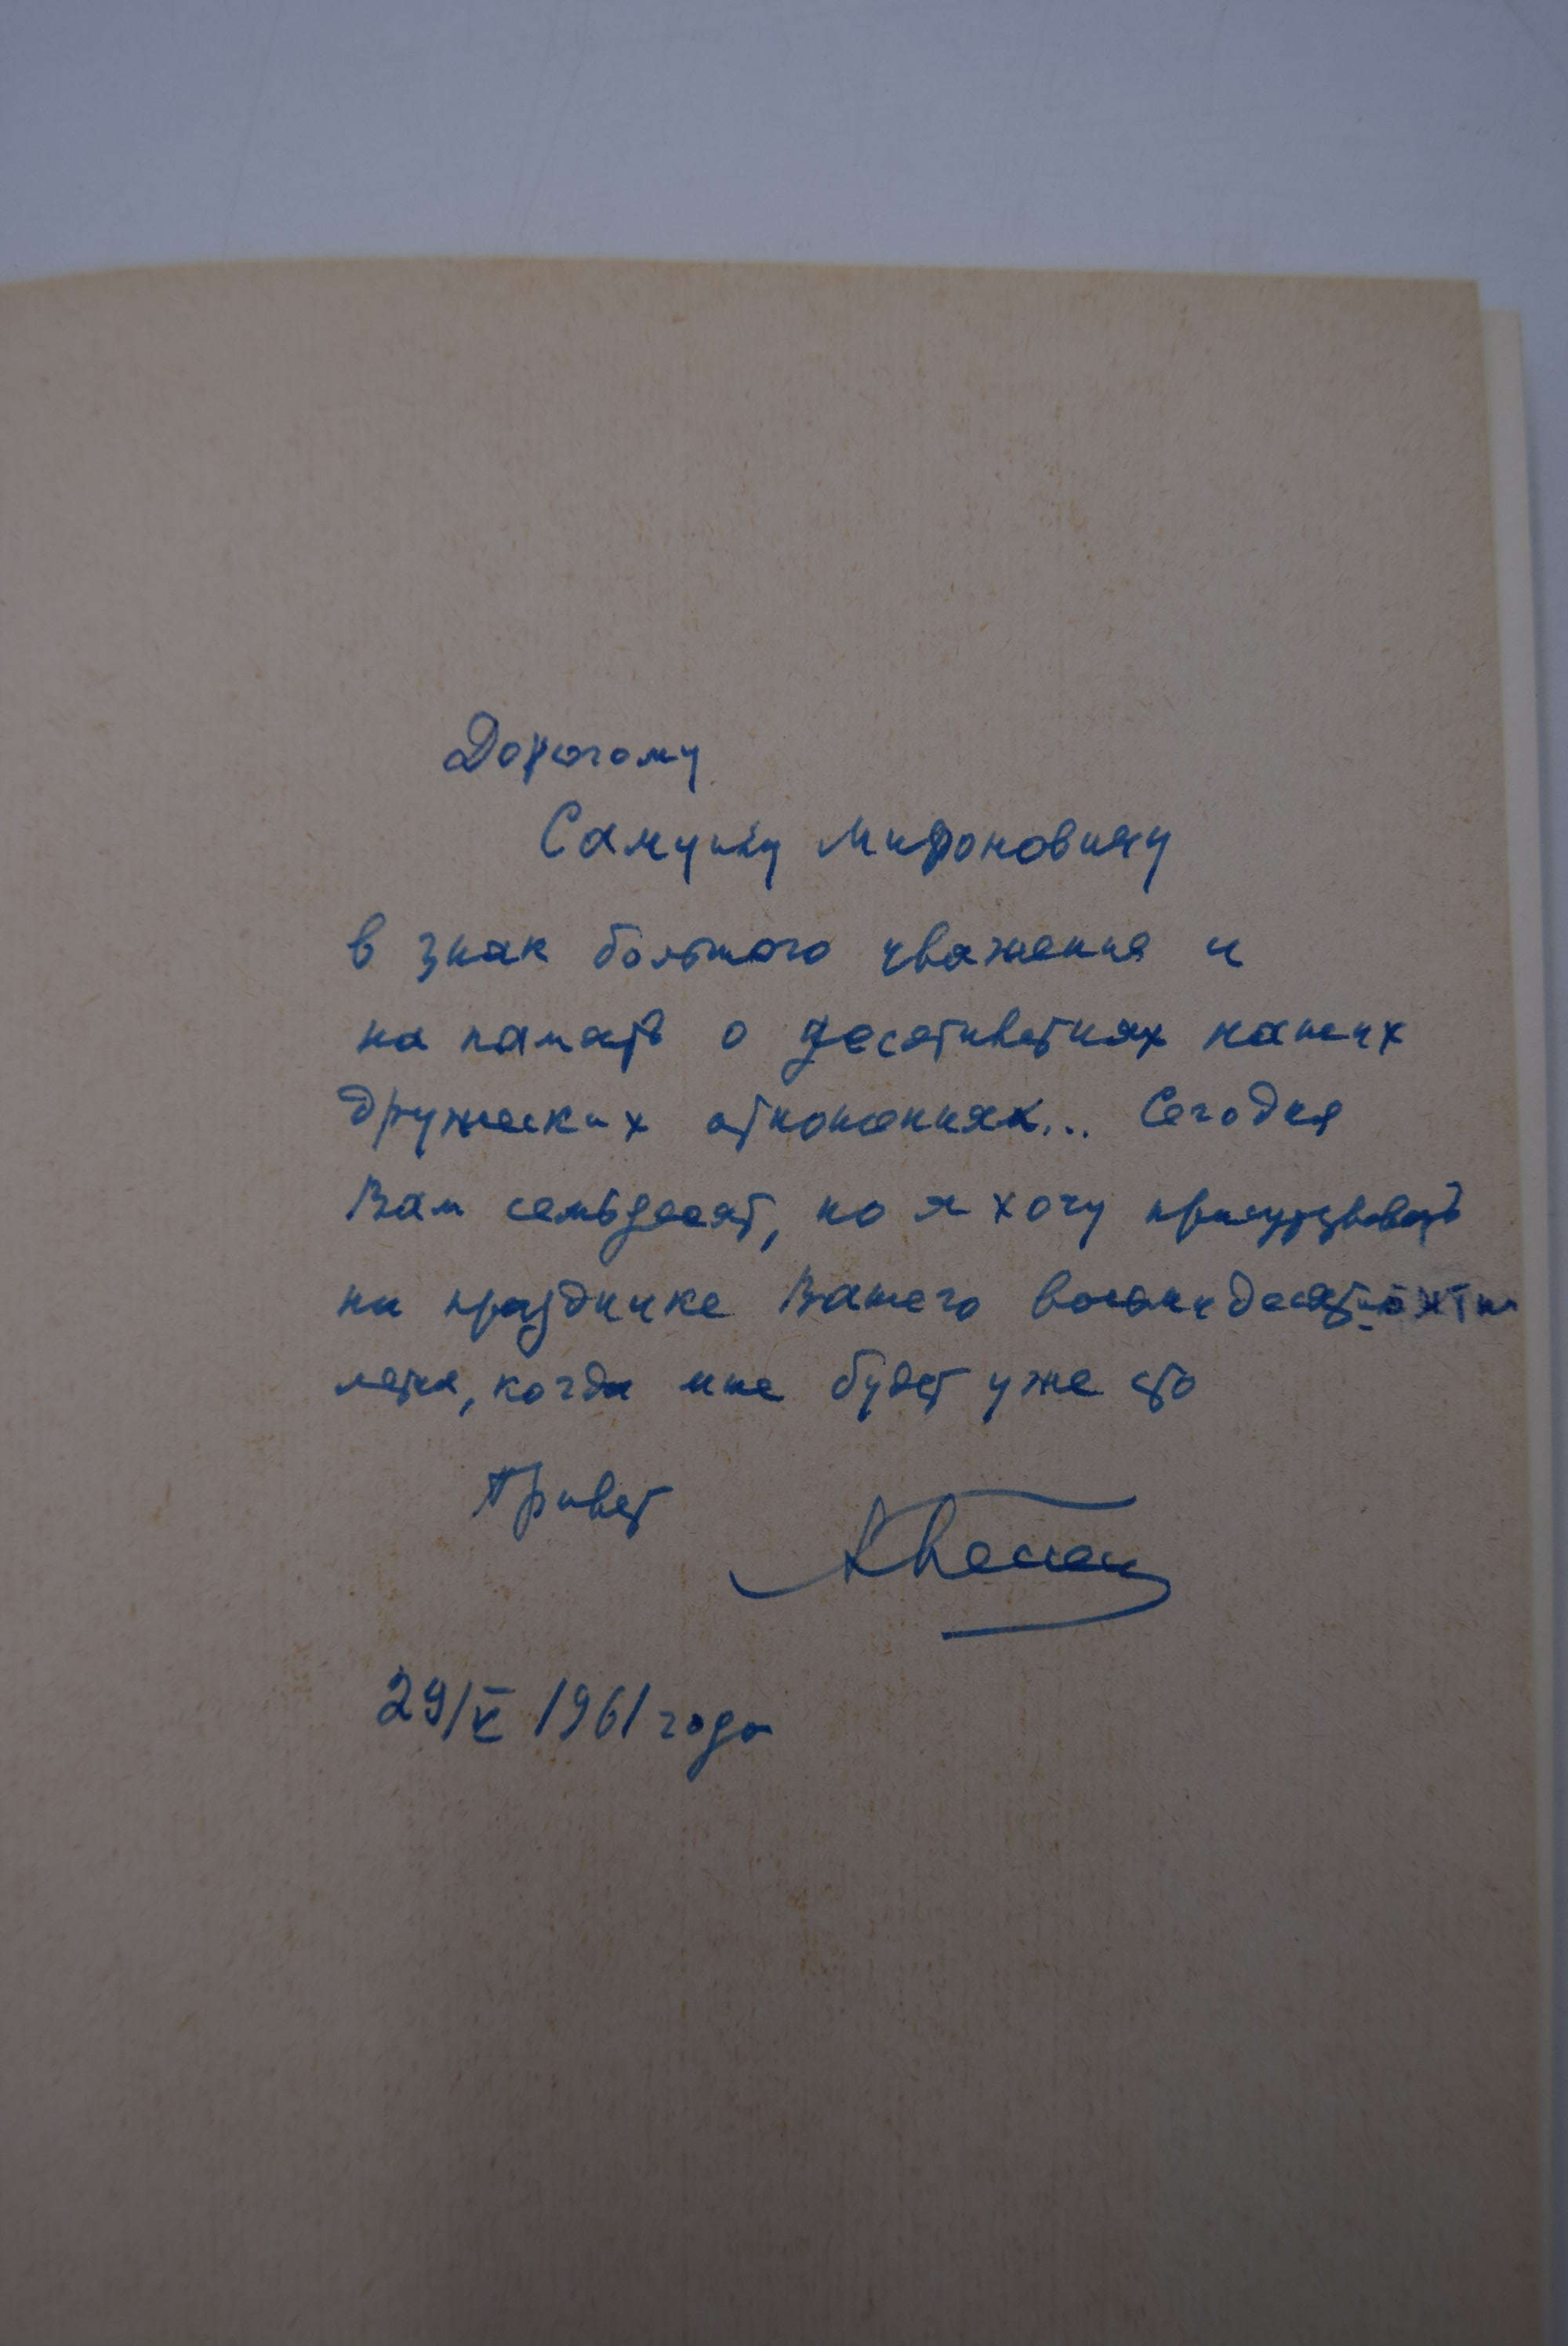 Дорогому
Самуилу Мироновичу
в знак большого уважения и
на память о десятилетиях наших
дружеских отношениях... Сегодня
Вам семьдесят, но я хочу присутствовать
на празднике Вашего восьмидесяти
летия, когда мне будет уже сто
Привет
29/V 1961 года